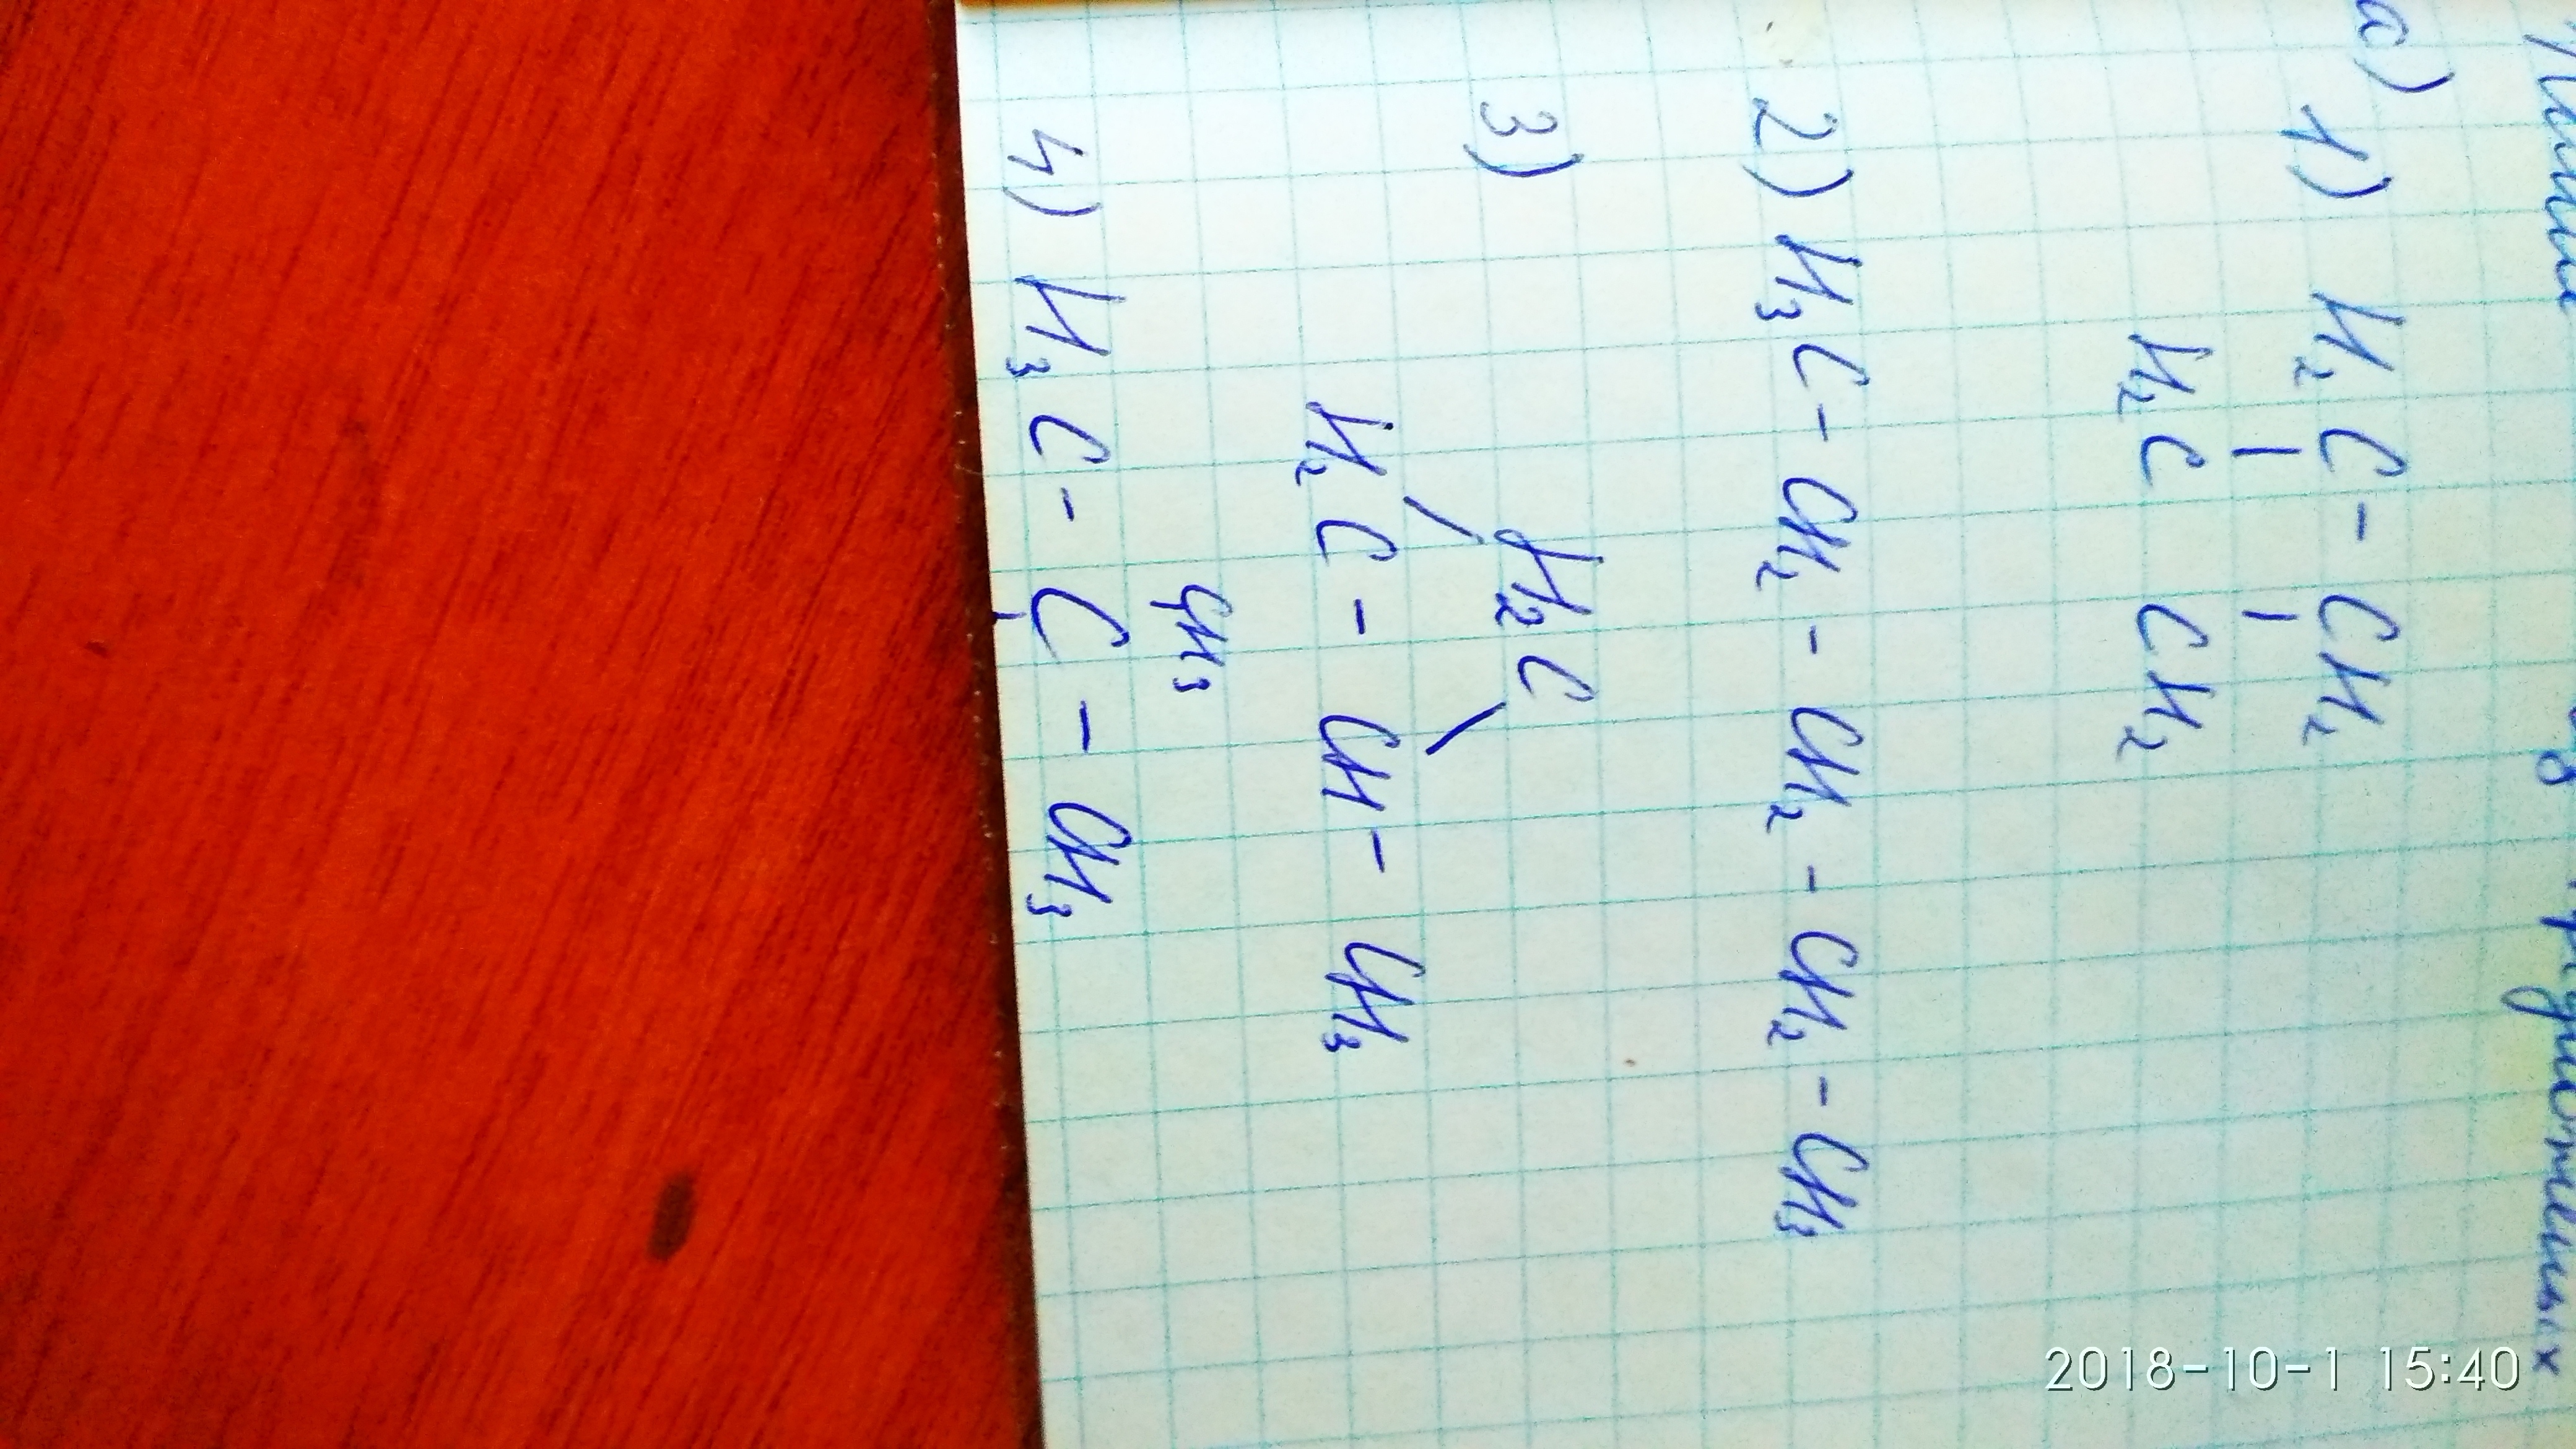 а) 1) H₂C - CH₂
| |
H₂C CH₂
2) H₃C - CH₂ - CH₂ - CH₂ - CH₃
3) H₂C
/ \
H₂C - CH - CH₃
CH₃
4) H₃C - C - CH₃
2018-10-1 15:40